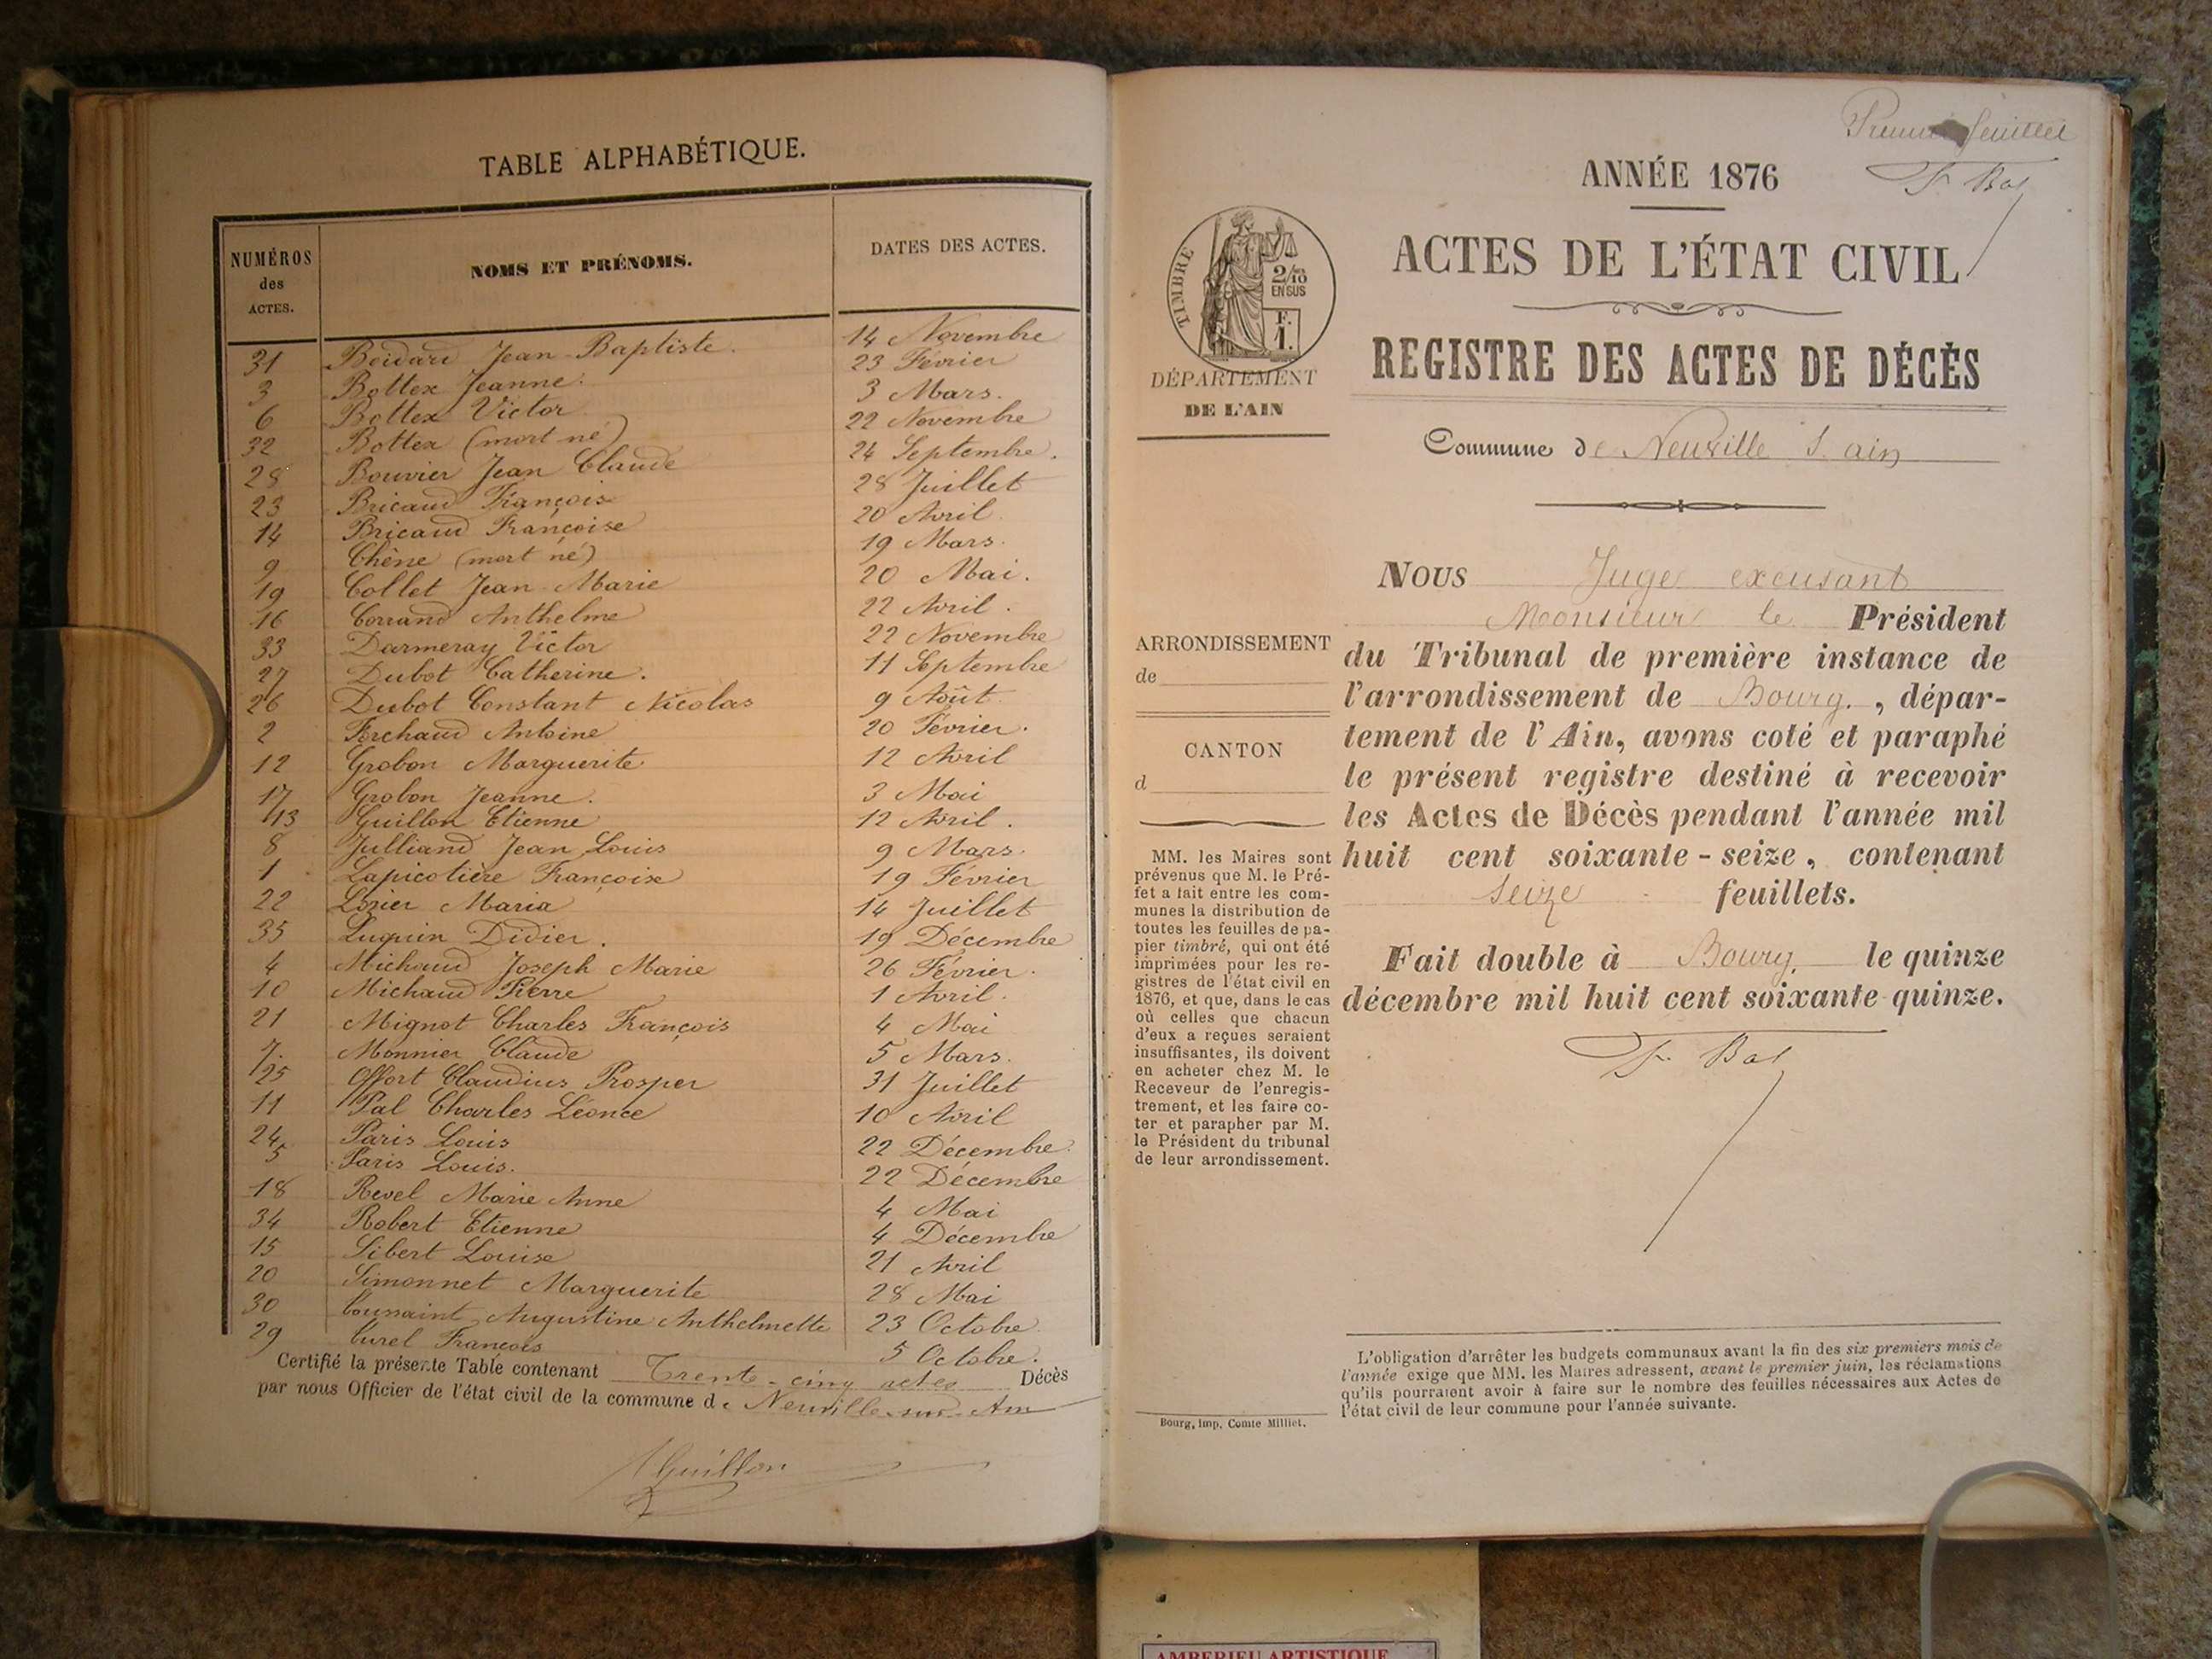 TABLE ALPHABÉTIQUE.
NUMÉROS des ACTES. NOMS ET PRÉNOMS. DATES DES ACTES.
31 Boidard Jean-Baptiste. 14 Novembre
3 Bottex Jeanne. 23 Février
6 Bottex Victor 3 Mars.
32 Bottex (mort né) 22 Novembre
28 Bouvier Jean Claude 24 Septembre.
23 Bricaud François 28 Juillet
14 Bricaud Françoise 20 Avril
9 Chêne (mort né) 19 Mars.
19 Collet Jean-Marie 20 Mai.
16 Corrand Anthelme 22 Avril.
33 Darmeray Victor 22 Novembre
27 Dubot Catherine. 11 Septembre
26 Dubot Constant Nicolas 9 Août
2 Antoine 20 Février.
12 Grobon Marguerite 12 Avril
17 Grobon Jeanne. 3 Mai
13 Guillon Etienne 12 Avril.
8 Julliand Jean Louis 9 Mars.
1 Lapicotière Françoise 19 Février
22 Maria 14 Juillet
35 Luquin Didier. 19 Décembre
4 Michaud Joseph Marie 26 Février.
10 Michaud Pierre 1 Avril.
21 Mignot Charles François 4 Mai
7. Monnier Claude 5 Mars.
25 Offort Claudius Prosper 31 Juillet
11 Pal Charles Léonce 10 Avril
24 Paris Louis 22 Décembre.
5 Paris Louis. 22 Décembre
18 Revel Marie Anne 4 Mai
34 Robert Etienne 4 Décembre
15 Sibert Louise 21 Avril
20 Simonnet Marguerite 28 Mai
30 Toussaint Augustine Anthelmette 23 Octobre
29 Turel François 5 Octobre.
Certifié la présente Table contenant Trente-cinq actes Décès
par nous Officier de l'état civil de la commune de Neuville-sur-Ain
Guillon
Premier feuillet
ANNÉE 1876
F. Bal
ACTES DE L'ÉTAT CIVIL
TIMBRE
2/10
EN SUS
F.
1.
REGISTRE DES ACTES DE DÉCÈS
DÉPARTEMENT
DE L'AIN
Commune de Neuville S. ain
NOUS Juge excusant
Monsieur le Président
du Tribunal de première instance de
l'arrondissement de Bourg., dépar-
tement de l'Ain, avons coté et paraphé
le présent registre destiné à recevoir
les Actes de Décès pendant l'année mil
huit cent soixante-seize, contenant
seize feuillets.
Fait double à Bourg, le quinze
décembre mil huit cent soixante quinze.
F. Bal
ARRONDISSEMENT
de
CANTON
d
MM. les Maires sont
prévenus que M. le Pré-
fet a fait entre les com-
munes la distribution de
toutes les feuilles de pa-
pier timbré, qui ont été
imprimées pour les re-
gistres de l'état civil en
1876, et que, dans le cas
où celles que chacun
d'eux a reçues seraient
insuffisantes, ils doivent
en acheter chez M. le
Receveur de l'enregis-
trement, et les faire co-
ter et parapher par M.
le Président du tribunal
de leur arrondissement.
L'obligation d'arrêter les budgets communaux avant la fin des six premiers mois de
l'année exige que MM. les Maires adressent, avant le premier juin, les réclamations
qu'ils pourraient avoir à faire sur le nombre des feuilles nécessaires aux Actes de
l'état civil de leur commune pour l'année suivante.
Bourg, imp. Comte Milliet.
AMBERIEU ARTISTIQUE